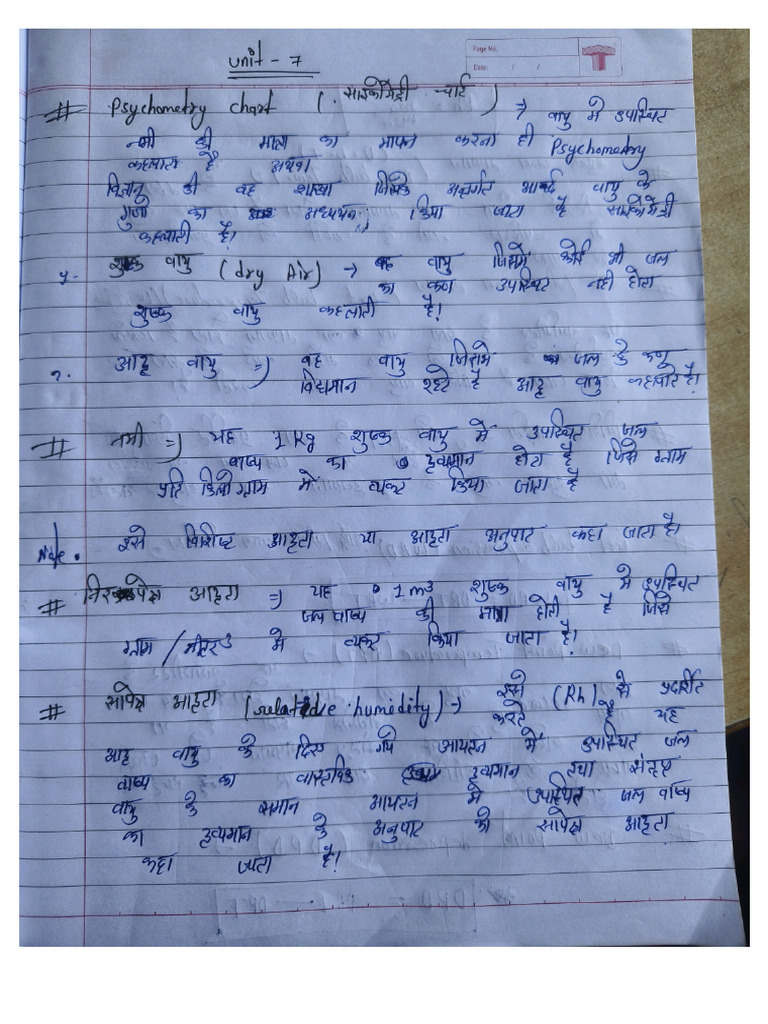 Unit - 7
Page No.
Date: / /
# Psychometry chart ( साइकोमेट्री चार्ट ) ⇒ वायु मे उपस्थित
नमी की मात्रा का मापन करना ही Psychometry
कहलाता है अथवा
विज्ञान की वह शाखा जिसके अन्तर्गत आर्द्र वायु के
गुणो का अध्ययन किया जाता है साइकोमेट्री
कहलाती है।
1- शुष्क वायु (dry Air) → वह वायु जिसमे कोई भी जल
का कण उपस्थित नही होता
शुष्क वायु कहलाती है।
2. आद्र वायु ⇒ वह वायु जिसमे जल के कण
विद्यमान रहते है आद्र वायु कहलाते है।
# नमी ⇒ यह 1 kg शुष्क वायु में उपस्थित जल
वाष्प का द्रव्यमान होता है जिसे ग्राम
प्रति किलोग्राम में व्यक्त किया जाता है
Note. इसे विशिष्ट आद्रता या आद्रता अनुपात कहा जाता है।
# निरपेक्ष आद्रता ⇒ यह 1 m3 शुष्क वायु मे उपस्थित
जल वाष्प की मात्रा होती है जिसे
ग्राम / मीटर3 मे व्यक्त किया जाता है।
# सापेक्ष आद्रता (relative humidity) → इसे (Rh) से प्रदर्शित
करते है यह
आद्र वायु के दिए गये आयतन में उपस्थित जल
वाष्प का वास्तविक द्रव्यमान तथा संतृप्त
वायु के समान आयतन मे उपस्थित जल वाष्प
का द्रव्यमान के अनुपात को सापेक्ष आद्रता
कहा जाता है।